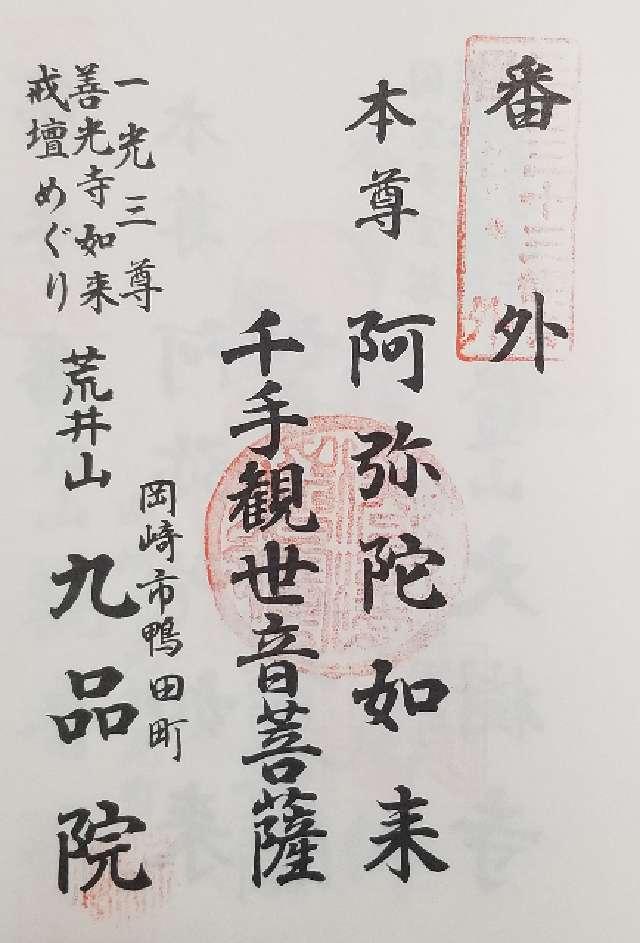 番外
本尊 阿弥陀如来
千手観世音菩薩
岡崎市鴨田町
一光三尊
善光寺如来
戒壇めぐり
荒井山 九品院